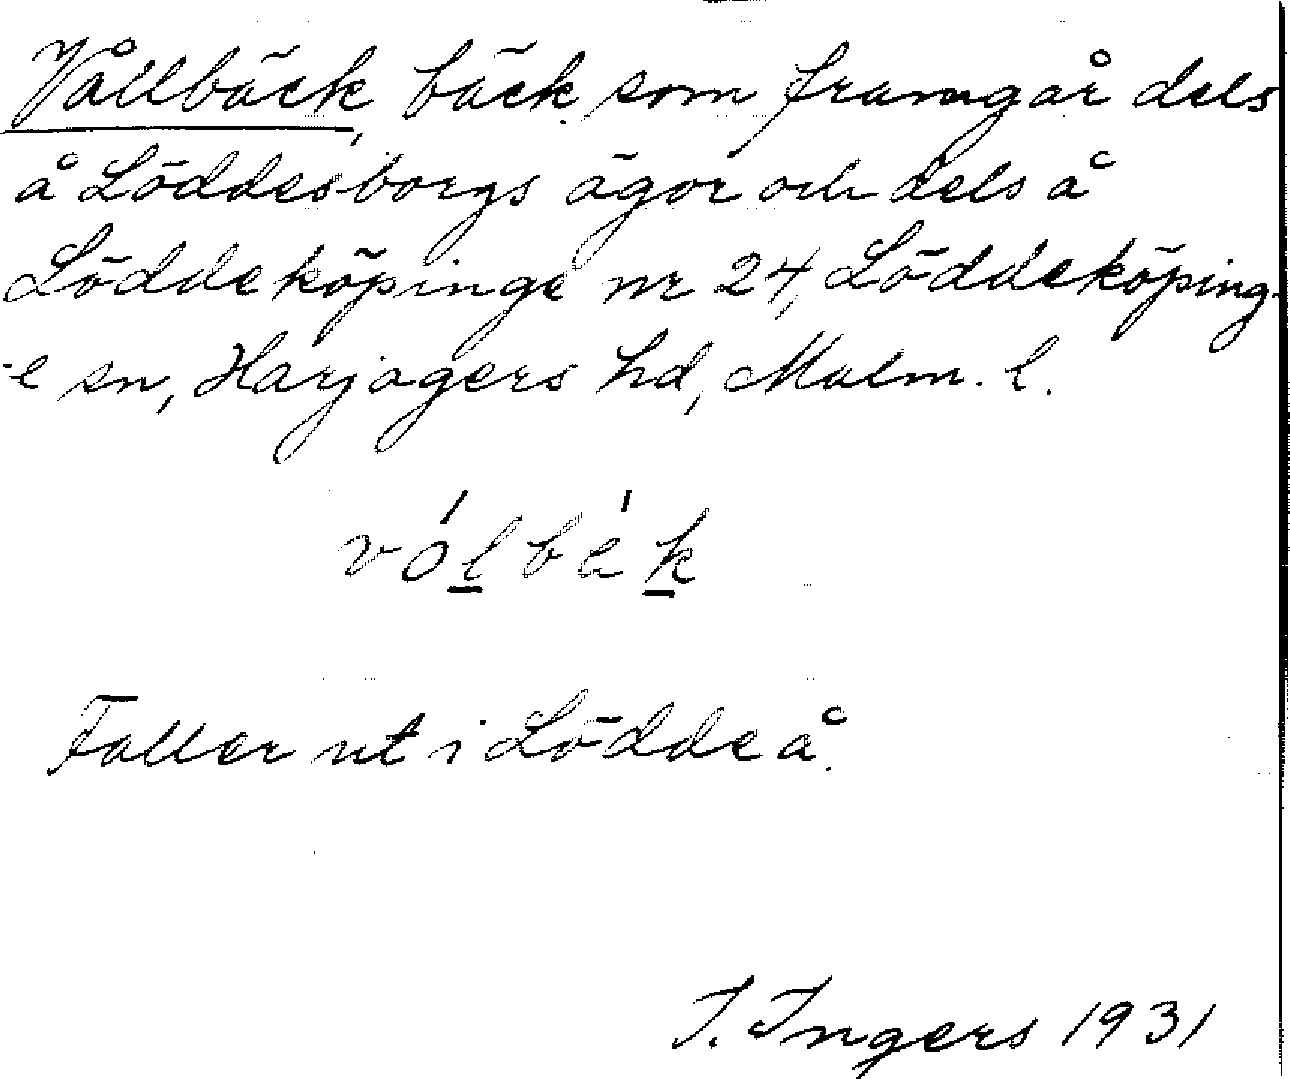 Vållbäck, bäck som framgår dels
å Löddesborgs ägor och dels å
Löddeköpinge nr 24, Löddeköping-
-e sn, Harjagers hd, Malm. l.
vålbäk
Faller ut i Löddeå.
I. Ingers 1931